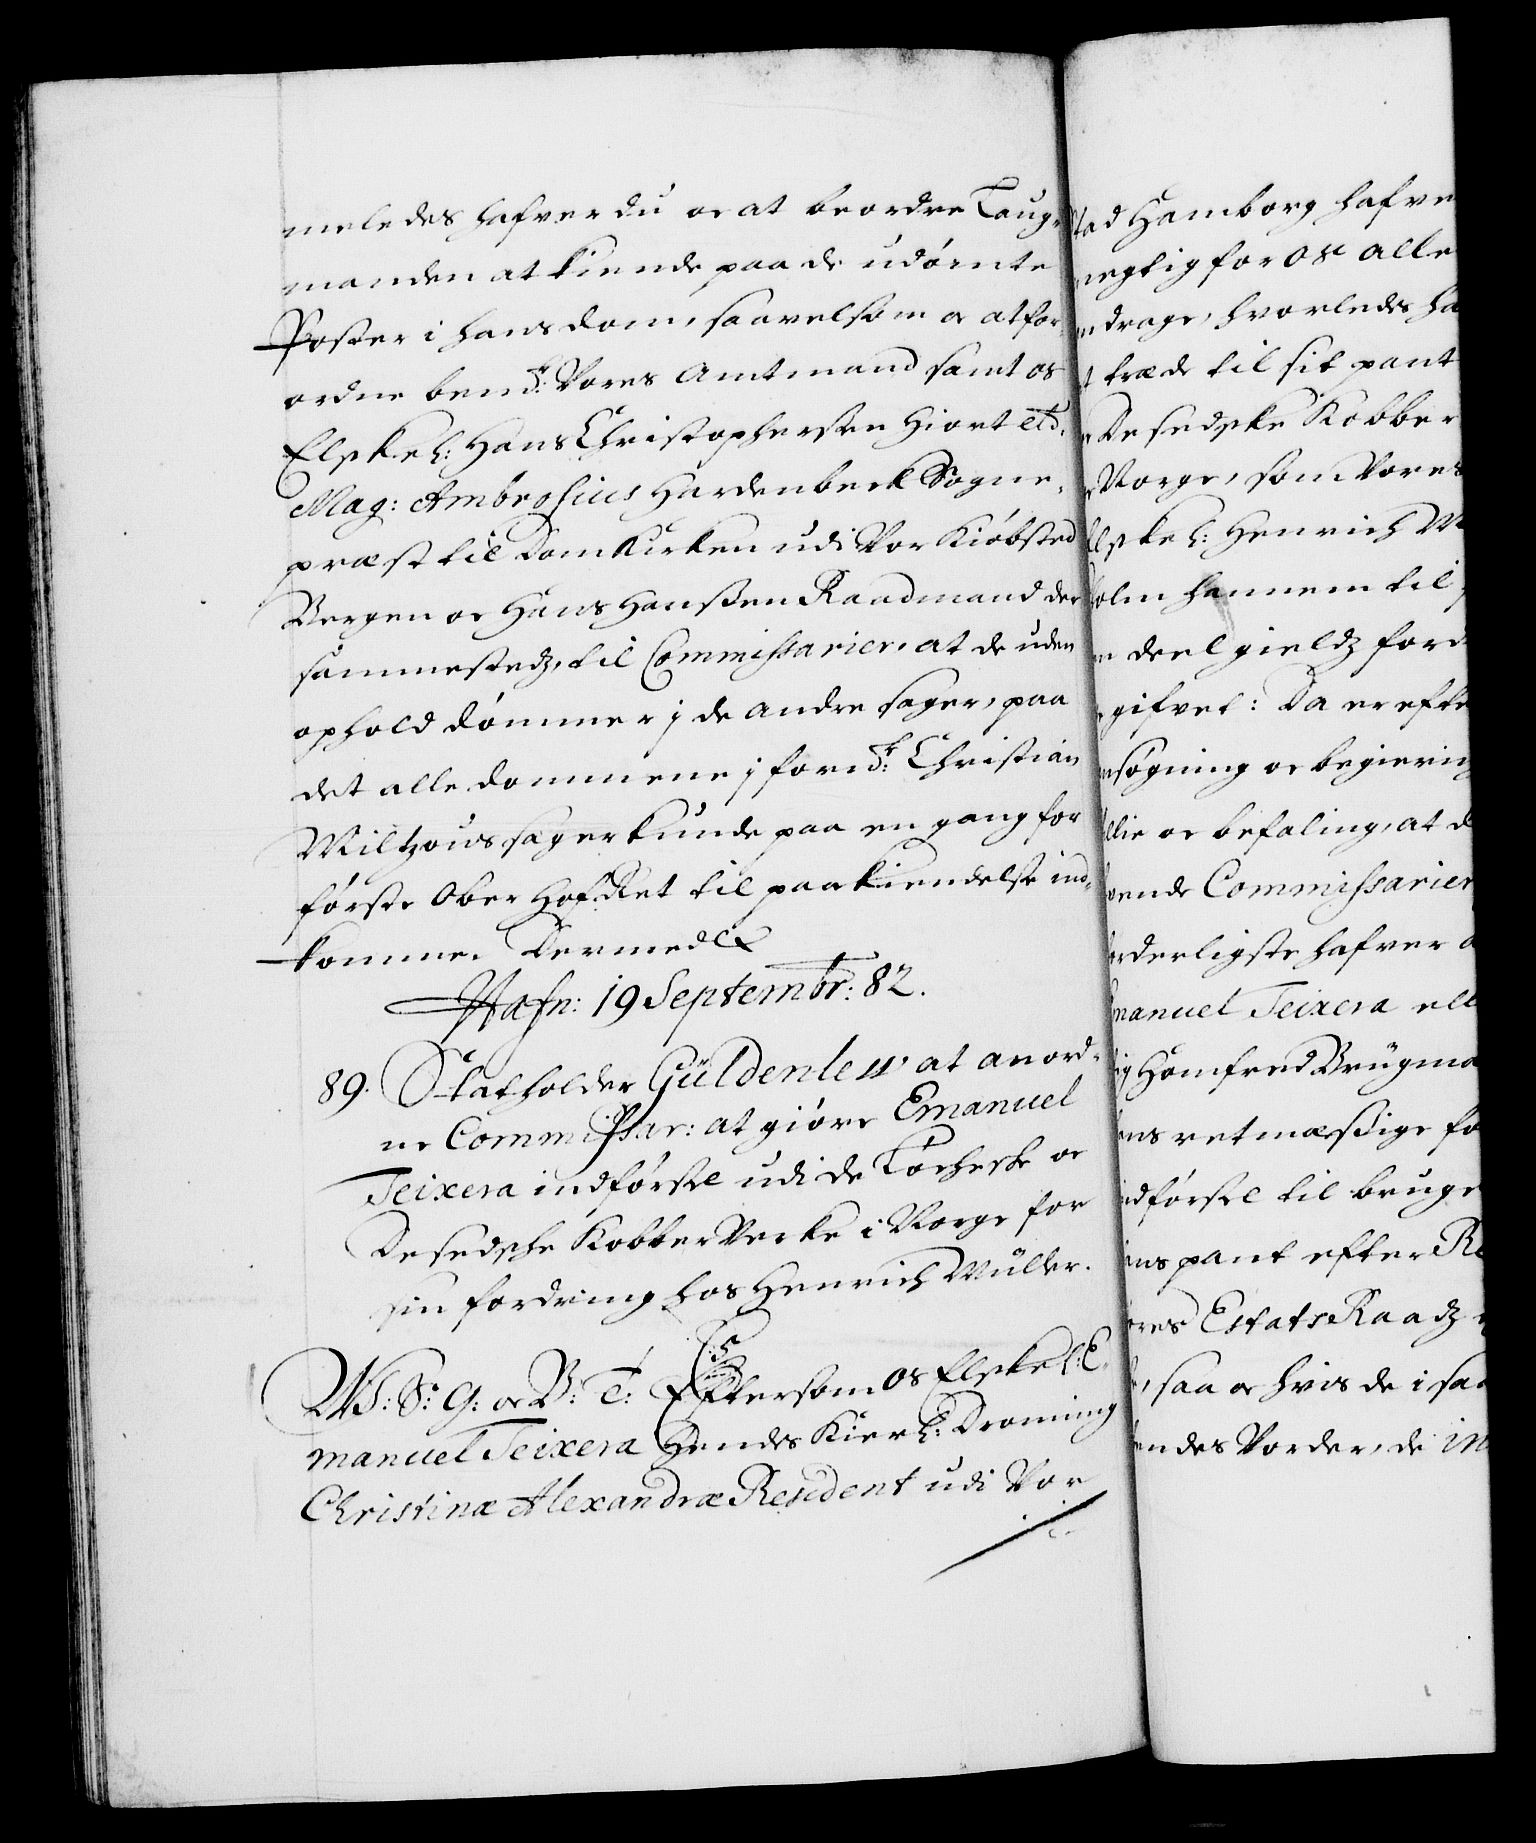 meledes hafver du oc at beordre Laug-
manden at kiende paa de udørnte
Poster i hans dom, saavelsom oc at for-
ordne bemd.te Vores Amtmand samt os
Elskel: Hans Christophersen Hiort etc.
Mag: Ambrosius Hardenbeck Sogne-
præst til Domkirken udi Vor Kiøbsted
Bergen oc Hans Hanssen Raadmand der
sammestedz, til Commissarier, at de uden
ophold dømmer j de andre sager, paa
det alle dommene j ford.te Christian
Miltzows sager kunde paa en gang for
første Ober Hof Ret til paakiendelse ind-
komme. Dermed etc
Hafn: 19 Septembr: 82.
89. Statholder Güldenlew at anord-
ne Commissar: at giøre Emanuel
Teixera indførsel udi de Løchesche oc
Desedsche Kobber Verke i Norge for
sin fordring hos Henrich Müller.
C5
W: S: G: oc V: T: Eftersom os Elskel: E-
manuel Teixera Hendes Kierl: Droning
Christinæ Alexandræ Resident udi Vor
stad Hamborg hafve
negtig for os alle
ndrage, hvorledes ha
t træde til sit pant
Desedske Kobber
Norge, som Vores
Elskel: Henrich M
olm hannem til
deel gieldz ford
gifvet: Da er efte
nsøgning oc begiering
llie oc befaling, at d
vende Commissarier
orderligste hafver a
manuel Teixera ell
ig Homfred Brügma
ens retmæssige fo
ndførsel til bruge
ins pant efter Re
ores Estats Raadz
, saa oc hvis de i saa
endes Vorder, de in